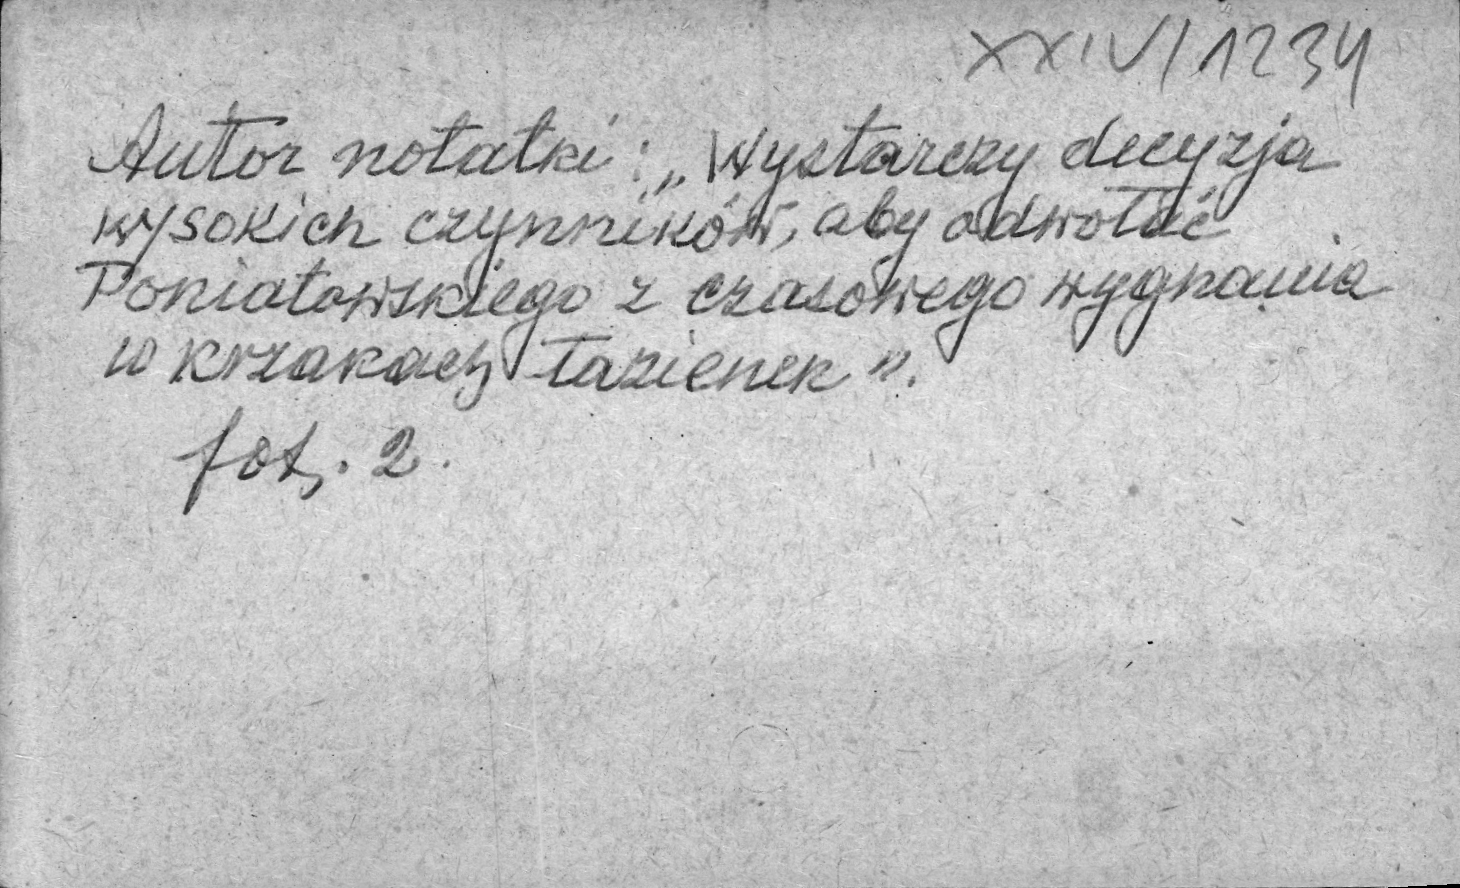 XXIV/1234
Autor notatki: „Wystarczy decyzja
wysokich czynników, aby odwołać
Poniatowskiego z czasowego wygnania
w krzakach Łazienek”.
fot. 2.